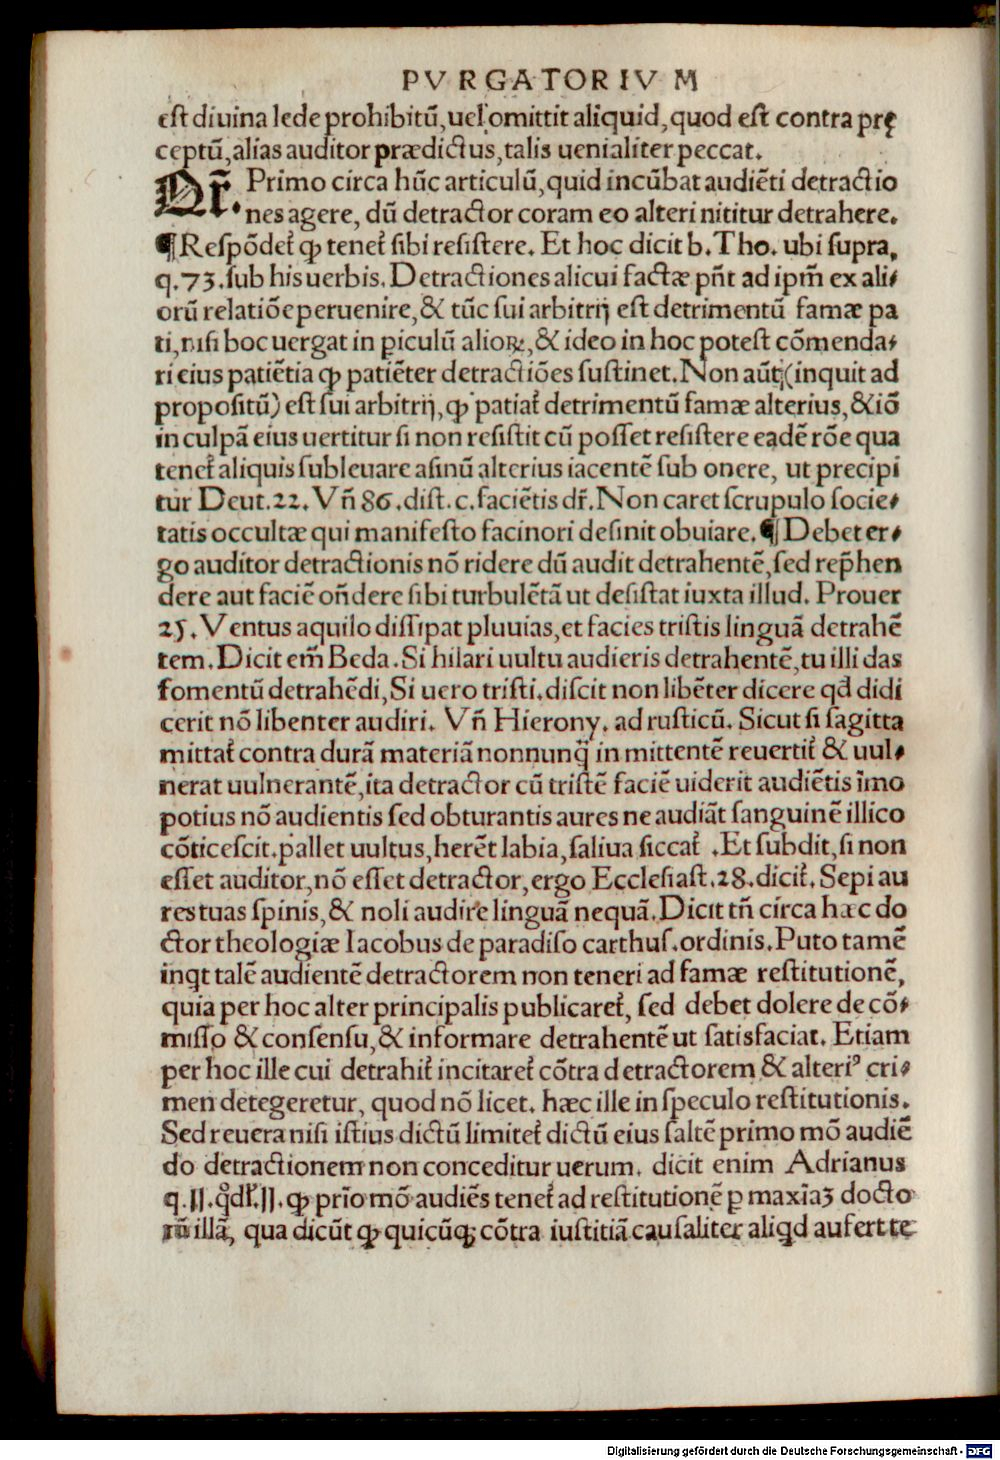 PVRGATORIVM
est diuina lede prohibitũ, uel omittit aliquid, quod est contra prę
ceptũ, alias auditor prædictus, talis uenialiter peccat.
Dr̃. Primo circa hũc articulũ, quid incũbat audiẽti detractio
nes agere, dũ detractor coram eo alteri nititur detrahere.
¶ Respõdet᷑ ꝙ tenet᷑ sibi resistere. Et hoc dicit b. Tho. ubi supra,
q. 73. sub his uerbis. Detractiones alicui factæ pñt ad ipm̃ ex ali⸗
orũ relatiõe peruenire, & tũc sui arbitrij est detrimentũ famæ pa
ti, nisi hoc uergat in ꝑiculũ alioꝝ, & ideo in hoc potest cõmenda⸗
ri eius patiẽtia ꝙ patiẽter detractiões sustinet. Non aũt (inquit ad
propositũ) est sui arbitrij, ꝙ patiat᷑ detrimentũ famæ alterius, & iõ
in culpã eius uertitur si non resistit cũ posset resistere eadẽ rõe qua
tenet᷑ aliquis subleuare asinũ alterius iacentẽ sub onere, ut precipi
tur Deut. 22. Vñ 86. dist. c. faciẽtis dr̃. Non caret scrupulo socie⸗
tatis occultæ qui manifesto facinori desinit obuiare. ¶ Debet er⸗
go auditor detractionis nõ ridere dũ audit detrahentẽ, sed rep̃hen
dere aut faciẽ oñdere sibi turbulẽtã ut desistat iuxta illud. Prouer
25. Ventus aquilo dissipat pluuias, et facies tristis linguã detrahẽ
tem. Dicit em̃ Beda. Si hilari uultu audieris detrahentẽ, tu illi das
fomentũ detrahẽdi, Si uero tristi. discit non libẽter dicere qd̃ didi
cerit nõ libenter audiri. Vñ Hierony. ad rusticũ. Sicut si sagitta
mittat᷑ contra durã materiã nonnunq̃ in mittentẽ reuertit᷑ & uul⸗
nerat uulnerantẽ, ita detractor cũ tristẽ faciẽ uiderit audiẽtis ĩmo
potius nõ audientis sed obturantis aures ne audiãt sanguinẽ illico
cõticescit. pallet uultus, herẽt labia, saliua siccat᷑ . Et subdit, si non
esset auditor, nõ esset detractor, ergo Ecclesiast. 28. dicit᷑. Sepi au
res tuas spinis, & noli audire linguã nequã. Dicit tñ circa hæc do
ctor theologiæ Iacobus de paradiso carthus. ordinis. Puto tamẽ
inqt talẽ audientẽ detractorem non teneri ad famæ restitutionẽ,
quia per hoc alter principalis publicaret᷑, sed debet dolere de cõ⸗
misso & consensu, & informare detrahentẽ ut satisfaciat. Etiam
per hoc ille cui detrahit᷑ incitaret᷑ cõtra detractorem & alteriꝰ cri⸗
men detegeretur, quod nõ licet. hæc ille in speculo restitutionis.
Sed reuera nisi istius dictũ limitet᷑ dictũ eius saltẽ primo mõ audiẽ
do detractionem non conceditur uerum. dicit enim Adrianus
q. 11. q̊dl̃. 11. ꝙ prĩo mõ audiẽs tenet᷑ ad restitutionẽ ꝑ maxĩaꝫ docto
rũ illã, qua dicũt ꝙ quicũqꝫ cõtra iustitiã causaliter aliqd aufert te
Digitalisierung gefördert durch die Deutsche Forschungsgemeinschaft - DFG